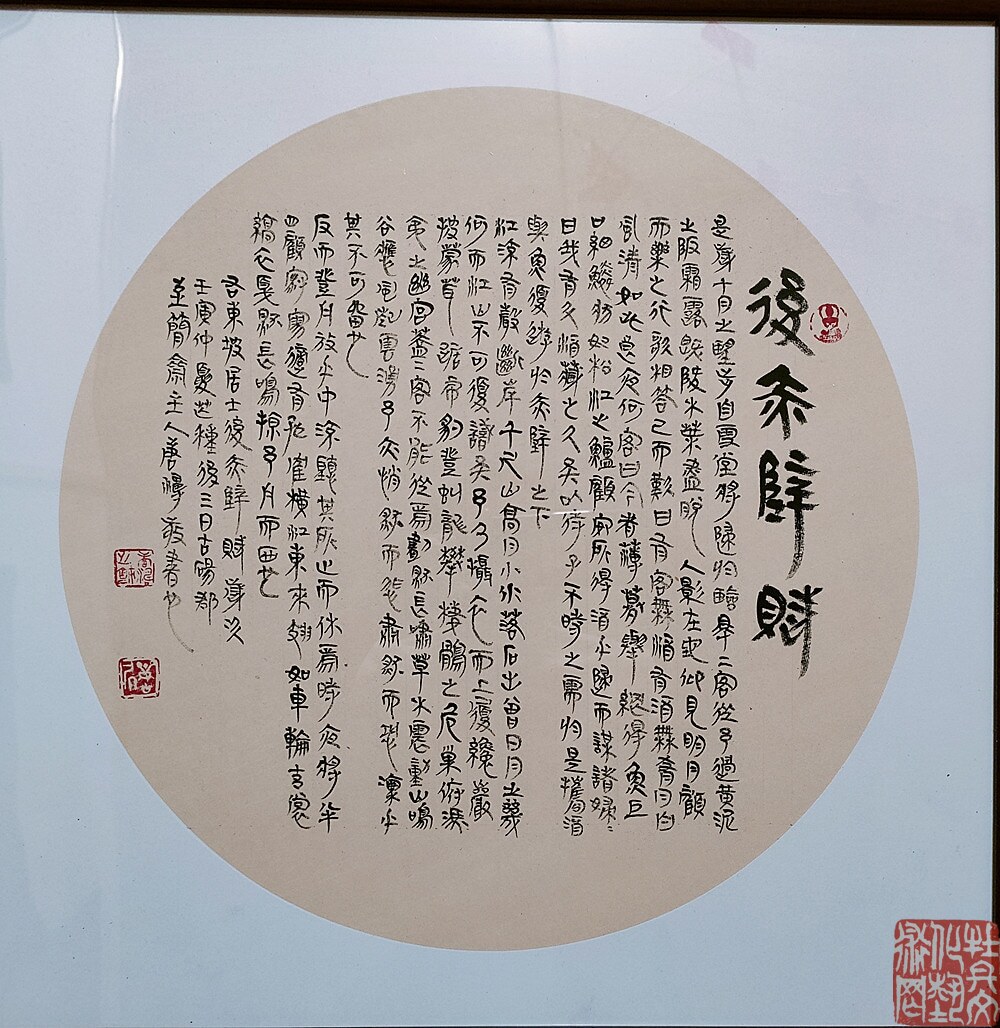 後赤壁賦
是歲十月之望步自雪堂將歸于臨皋二客從予過黃泥
之阪霜露既降木葉盡脫人影在地仰見明月顧
而樂之行歌相答已而歎曰有客無酒有酒無肴月白
風清如此良夜何客曰今者薄暮舉網得魚巨
口細鱗狀如松江之鱸顧安所得酒乎歸而謀諸婦婦
曰我有斗酒藏之久矣以待子不時之需於是攜酒
與魚復遊於赤壁之下
江流有聲斷岸千尺山高月小水落石出曾日月之幾
何而江山不可復識矣予乃攝衣而上履巉巖
披蒙茸踞虎豹登虯龍攀棲鶻之危巢俯馮
夷之幽宮蓋二客不能從焉劃然長嘯草木震動山鳴
谷應風起雲湧予亦悄然而悲肅然而恐凜乎
其不可留也
反而登舟放乎中流聽其所止而休焉時夜將半
四顧寂寥適有孤鶴橫江東來翅如車輪玄裳
縞衣戛然長鳴掠予舟而西也
右東坡居士後赤壁賦歲次
壬寅仲夏芒種後三日古陽郡
主人唐
書也
牡丹文化藝術网